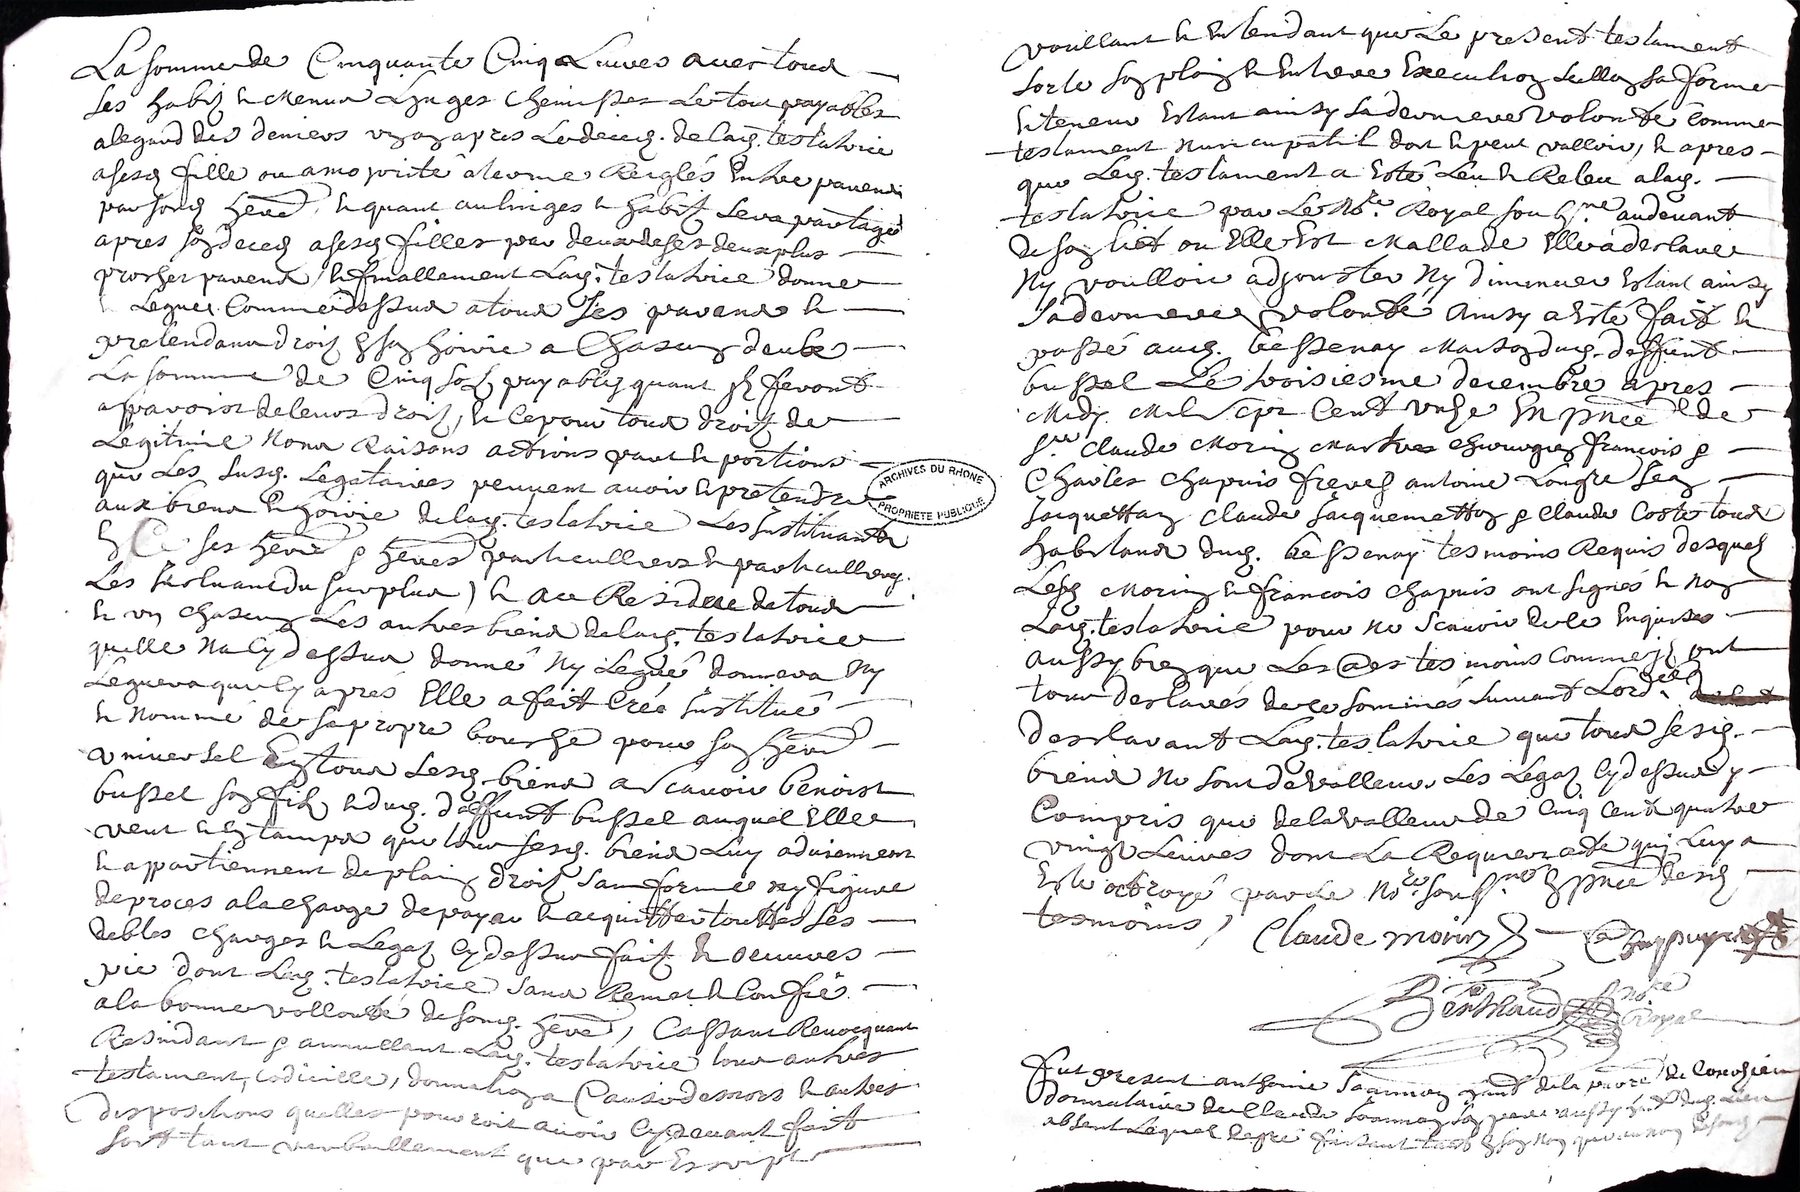 La somme de Cinquante Cinq Livres avec tous
ses habitz & Menus Linges Chemisses Le tout payables
alegard des deniers ung an apres Le deces de lad. testatrice
a sesd fille ou a mojorité a terme Reiglés Entre parens
par sond here. & quant au linges & habitz Sera partagé
apres son deces a sesd filles par deux de ses deux plus
proches parens & finallement Lad. testatrice donne
& Legue Comme dessus a tous Ses parens &
pretendans droit En son hoirie a Chascun deux
La somme de Cinq solz payables quant ilz feront
apparoir de leurs droitz, & Ce pour tous droitz de
Legitime Noms Raisons actions part & portions
que Les susd. Legataires peuvent avoir & pretendre
aux biens & hoirie de lad. testatrice Les Instituant
En Ce ses heres & heres particulliers & particulleres
Les Excluant du surplus) & au Residue de tous
& un chascung Les autres biens de lad. testatrice
quelle Na Cy dessus donné Ny Legué donnera Ny
Leguera que Cy aprés Elle a fait Creé Institué
& Nommé de sa propre bouche pour son here
universel En tous Sesd biens a scavoir benoist
bussel son filz & dud. deffunt bussel auquel Elle
veut & Entempd que tous sesd. biens Luy adviennent
& appartiennent de plain droit sans forme ny figure
de proces a la charge de payer & acquitter touttes Ses
debtes charges & Legatz Cy dessus faitz & oeuvres
pie dont Lad. testatrice sans Remet & Confie
a la bonne vollonté de sond. here, Cassant Revocquant
Resindant & annullant Lad. testatrice tous autres
testament, Codicille, donnation a Cause de mors & autres
dispositions quelles pourroit avoir Cy devant fait
soit tant verballement que par Escript
ARCHIVES DU RHONE
PROPRIETE PUBLIQUE
voullant & Entendant que Le present testament
sorte son plain & Entiere Execution sellon sa forme
& teneur Estant ainsy sa derniere volonté Comme
testament Nuncupatif dont & peut valloir, & apres
que Led. testament a Esté Leu & Releu a lad.
testatrice par Le Nore. Royal soubsne au devant
de son lict ou Elle Est Mallade Elle a desclare
Ny voulloir adjouster Ny diminuer Estant ainsy
sa derniere volonté ainsy a Esté fait &
passé aud. bessenay Maison dud. deffunt
bussel Le troisiesme decembre apres
Midy Mil sept Cent unze En pnce de
sr. Claude Morin Maistre chirurgien françois &
Charles chapuis freres antoine Longre Jean
Jacquetton Claude Jacquemetton & Claude Coste tous
habitans dud. bessenay tesmoins Requis desquelz
Lesd Morin & françois chapuis ont signés & Non
Lad. testatrice pour ne scavoir de ce Enquise
aussy bien que Les aes tesmoins Comme ilz ont
tous desclarés de ce sommés suivant Lordce
desclarant Lad. testatrice que tous sesd.
biens ne sont de valleur Les Legatz Cy dessus y
Compris que de la valleur de Cinq Cent quatre
vingt Livres dont La Requiers acte qui Luy a
Esté octroyé par Le Nore. soubsne En pnce desd
tesmoins, Claude morin f chappuys
Berthaud Nore
Royal
Fut present anthoine habt de la parre de
donnataire de Claude son pere aussy habt dud. Lieu
absent Lequel faisant tant En son Nom que au nom de sond